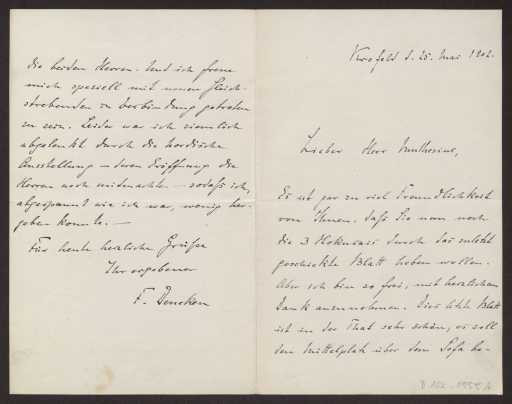 Krefeld d. 25. Mai 1902.
Lieber Herr Muthesius,
Es ist gar zu viel Freundlichkeit
von Ihnen, daß Sie nun noch
die 3 Hokusai durch das zuletzt
geschickte Blatt heben wollen.
Aber ich bin so frei, mit herzlichem
Dank anzunehmen. Dies letzte Blatt
ist in der That sehr schön, es soll
den Mittelplatz über dem Sofa be-
die beiden Herren. Und ich freue
mich speziell mit neuen Gleich-
strebenden in Verbindung getreten
zu sein. Leider war ich ziemlich
abgelenkt durch die nordische
Ausstellung – deren Eröffnung die
Herren noch mitmachten – sodaß ich,
abgespannt wie ich war, wenig her-
geben konnte. –
Für heute herzliche Grüße
Ihr ergebener
F. Deneken